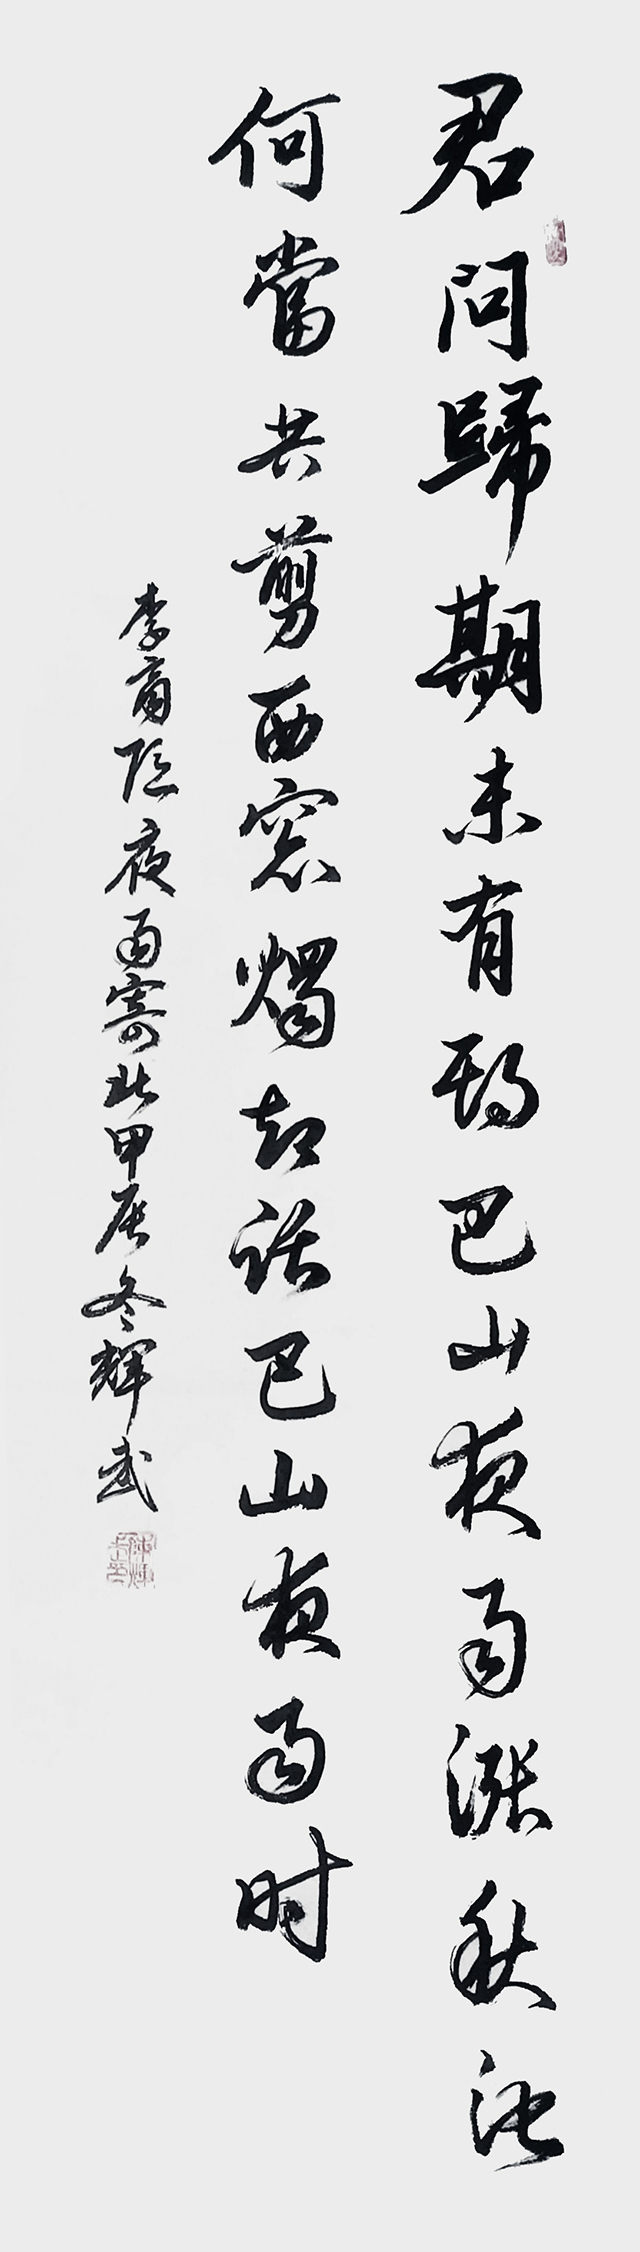 君问歸期未有期巴山夜雨漲秋池
何當共剪西窓燭却話巴山夜雨时
李商隐夜雨寄北甲辰冬輝武